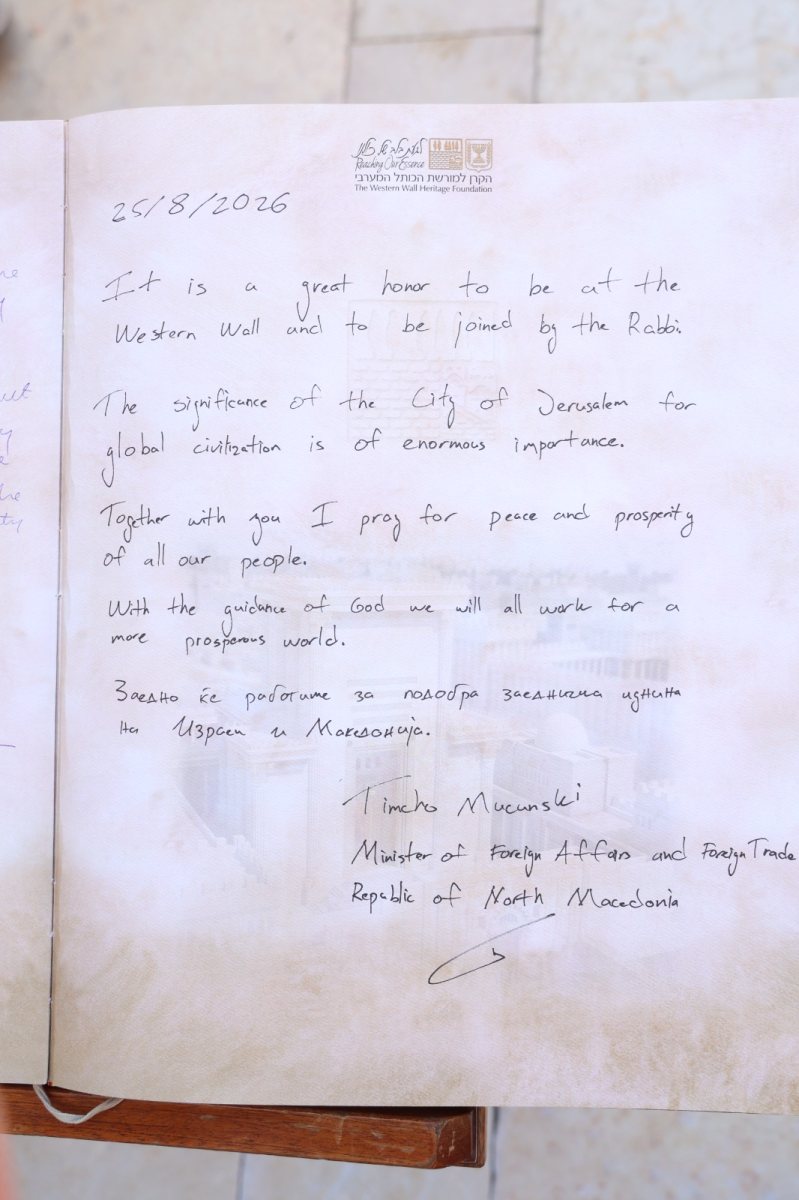 לגעת בלב של כולנו
Reaching Our Essence
הקרן למורשת הכותל המערבי
The Western Wall Heritage Foundation
25/8/2026
It is a great honor to be at the
Western Wall and to be joined by the Rabbi.
The significance of the City of Jerusalem for
global civilization is of enormous importance.
Together with you I pray for peace and prosperity
of all our people.
With the guidance of God we will all work for a
more prosperous world.
Заедно ќе работиме за подобра заедничка иднина
на Израел и Македонија.
Timcho Mucunski
Minister of Foreign Affairs and Foreign Trade
Republic of North Macedonia